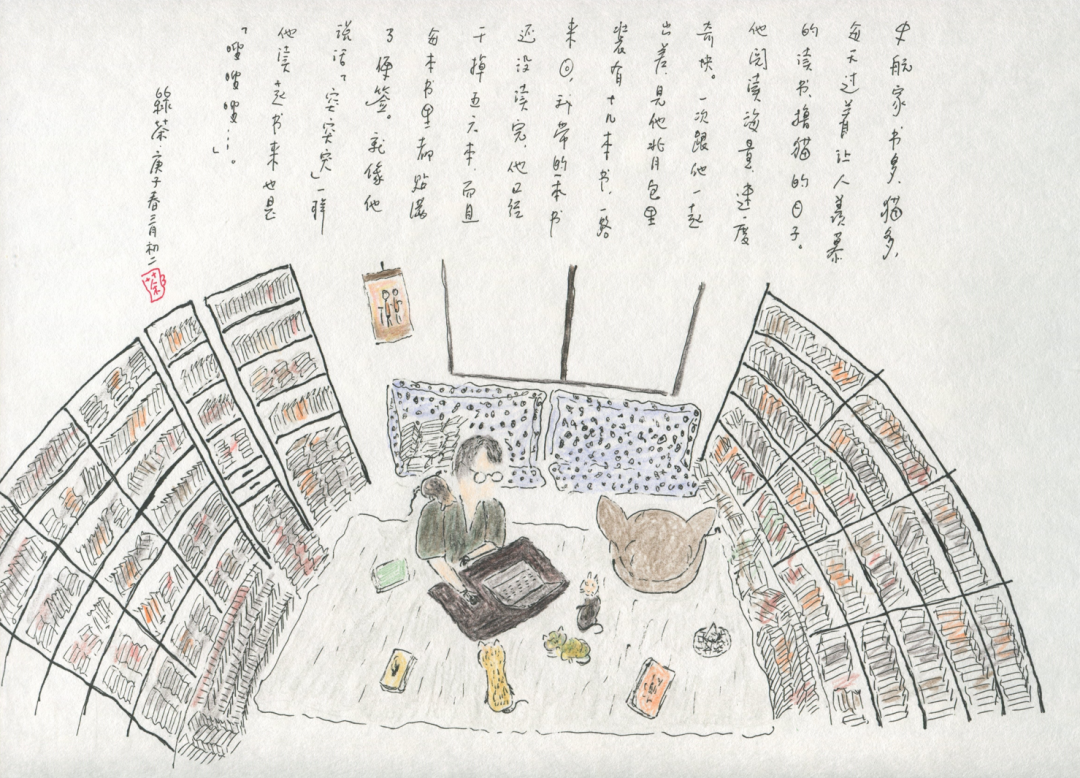 史航家书多,猫多,
每天过着让人羡慕
的读书撸猫的日子。
他阅读海量,速度
奇快。一次跟他一起
出差,见他背包里
装有十几本书,一路
来回,我带的一本书
还没读完,他已经
干掉五六本,而且
每本书里都贴满
了便签。就像他
说话「突突突」一样
他读起书来也是
「嗖嗖嗖…」。
綠茶·庚子春三月初二
茶